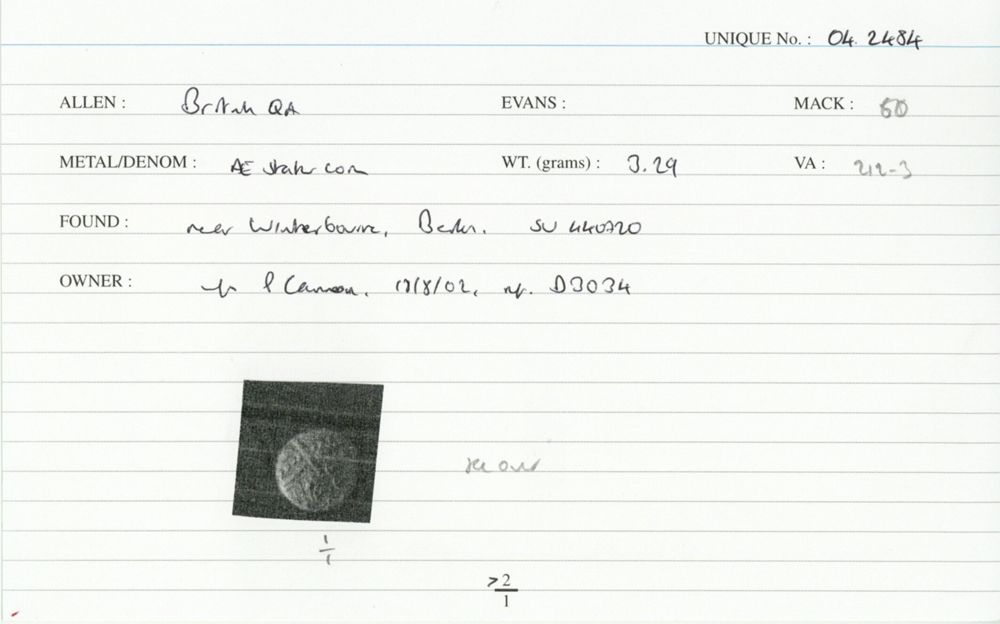 UNIQUE No. : 04. 2484
ALLEN : British QA EVANS : MACK : 60
METAL/DENOM : AE stater core WT. (grams) : 3.29 VA : 212-3
FOUND : near Winterbourne, Berks. SU 440720
OWNER : P Cannon, 17/8/02, ref. D3034
see over
1/1
>2/1